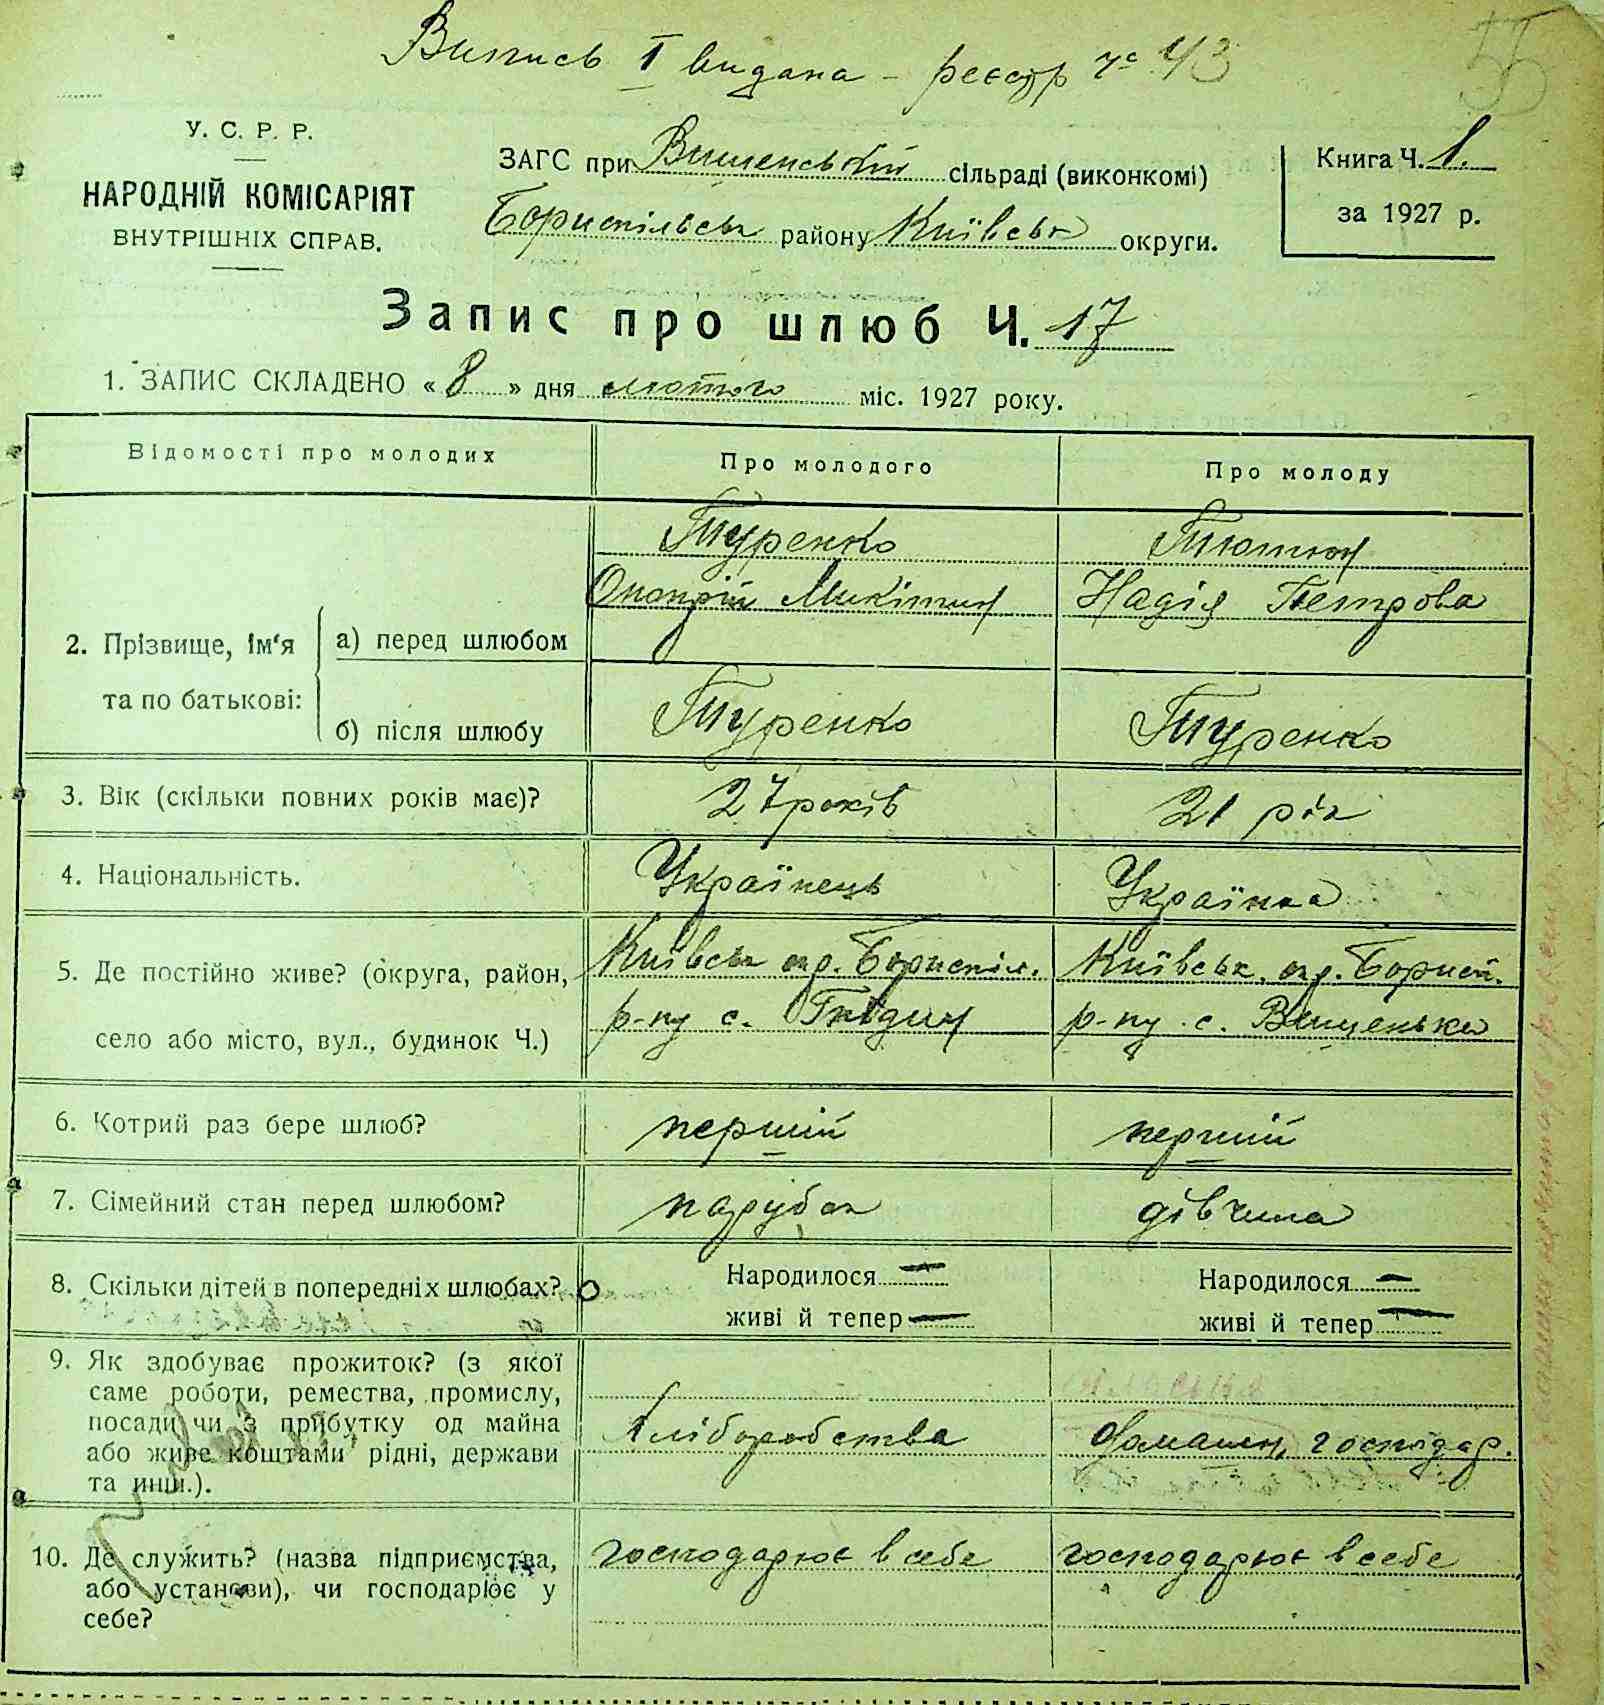 Випись I видана – реєстр № 43
55
У. С. Р. Р.
НАРОДНІЙ КОМІСАРІЯТ
ВНУТРІШНІХ СПРАВ.
ЗАГС при Вишенській сільраді (виконкомі)
Бориспільськ району Київськ округи.
Книга Ч. 1.
за 1927 р.
Запис про шлюб Ч. 17
1. ЗАПИС СКЛАДЕНО « 8 » дня лютого міс. 1927 року.
Відомості про молодих
Про молодого
Про молоду
2. Прізвище, ім'я та по батькові:
а) перед шлюбом
Туренко
Онопрій Микітин
Тютюн
Надія Петрова
б) після шлюбу
Туренко
Туренко
3. Вік (скільки повних років має)?
27 років
21 рік
4. Національність.
Українець
Українка
5. Де постійно живе? (округа, район,
село або місто, вул., будинок Ч.)
Київськ окр. Бориспіл.
р-ну с. Гнідин
Київськ. окр. Борисп.
р-ну с. Вишеньки
6. Котрий раз бере шлюб?
перший
перший
7. Сімейний стан перед шлюбом?
парубок
дівчина
8. Скільки дітей в попередніх шлюбах?
Народилося —
живі й тепер —
Народилося —
живі й тепер —
9. Як здобуває прожиток? (з якої
саме роботи, ремества, промислу,
посади чи з прибутку од майна
або живе коштами рідні, держави
та инш.).
Хліборобства
домашн. господар.
10. Де служить? (назва підприємства,
або установи), чи господарює у
себе?
господарює в себе
господарює в себе